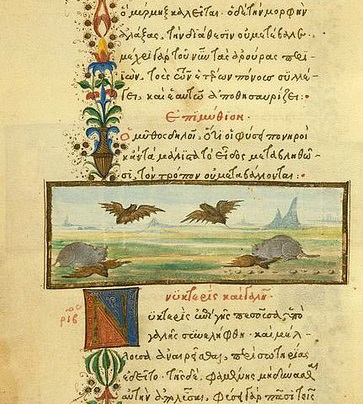 ὁ μύρμηξ καλεῖται. ὁ δὲ τὴν μορφὴν
ἀλλάξας, τὴν διάθεσιν οὐ μετεβάλε-
το· μέχρι γὰρ τοῦ νῦν τὰς ἀρούρας περι-
ιών, τοὺς τῶν ἑτέρων πόνους συλλέ-
γει, καὶ ἑαυτῷ ἀποθησαυρίζει:
Ἐπιμύθιον.
Ὁ μῦθος δηλοῖ, ὅτι οἱ φύσει πονηροὶ
κἂν τὰ μάλιστα τὸ εἶδος μεταβληθῶ-
σι, τὸν τρόπον οὐ μεταβάλλονται:
νυκτερὶς καὶ γαλῆ.
ριβ
Νυκτερὶς ἐπὶ γῆς πεσοῦσα, ὑπὸ
γαλῆς συνελήφθη. καὶ μέλ-
λουσα ἀναιρεῖσθαι, περὶ σωτηρίας
ἐδεῖτο. τῆς δὲ φαμένης μὴ δύνασθαι
αὐτὴν ἀπολῦσαι, φύσει γὰρ πᾶσι τοῖς